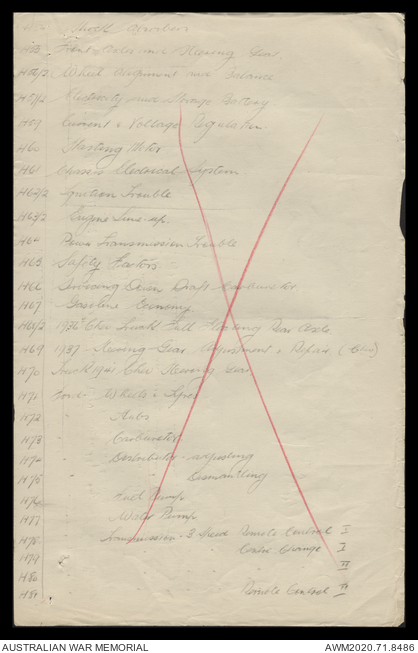 Shock Absorbers
H53 Front Axles and Steering Gear.
Wheel Alignment and Balance
Electricity and Storage Battery
H59 Current & Voltage Regulation
H60 Starting Motor
H61 Chassis Electrical System
H62/2 Ignition Trouble
H63/2 Engine Tune-up.
H64 Power Transmission Trouble
H65 Safety Factors
H66 Servicing Down Draft Carburetor.
H67 Gasoline Economy.
H68/2 1936 Chev Small Full Floating Rear Axle.
H69 1937 - Steering Gear Adjustment & Repair (Chev)
H70 Truck 1941 Chev Steering Gear
H71 Ford - Wheels & Tyres
H72 " Hubs
H73 " Carburetor.
H74 " Distributor - adjusting
H75 " " Dismantling
H76 " Fuel Pump
H77 " Water Pump
H78 Transmission - 3 Speed Remote Control I
H79 Centre Change I
H80 " II
H81 Remote Control II
AUSTRALIAN WAR MEMORIAL
AWM2020.71.8486